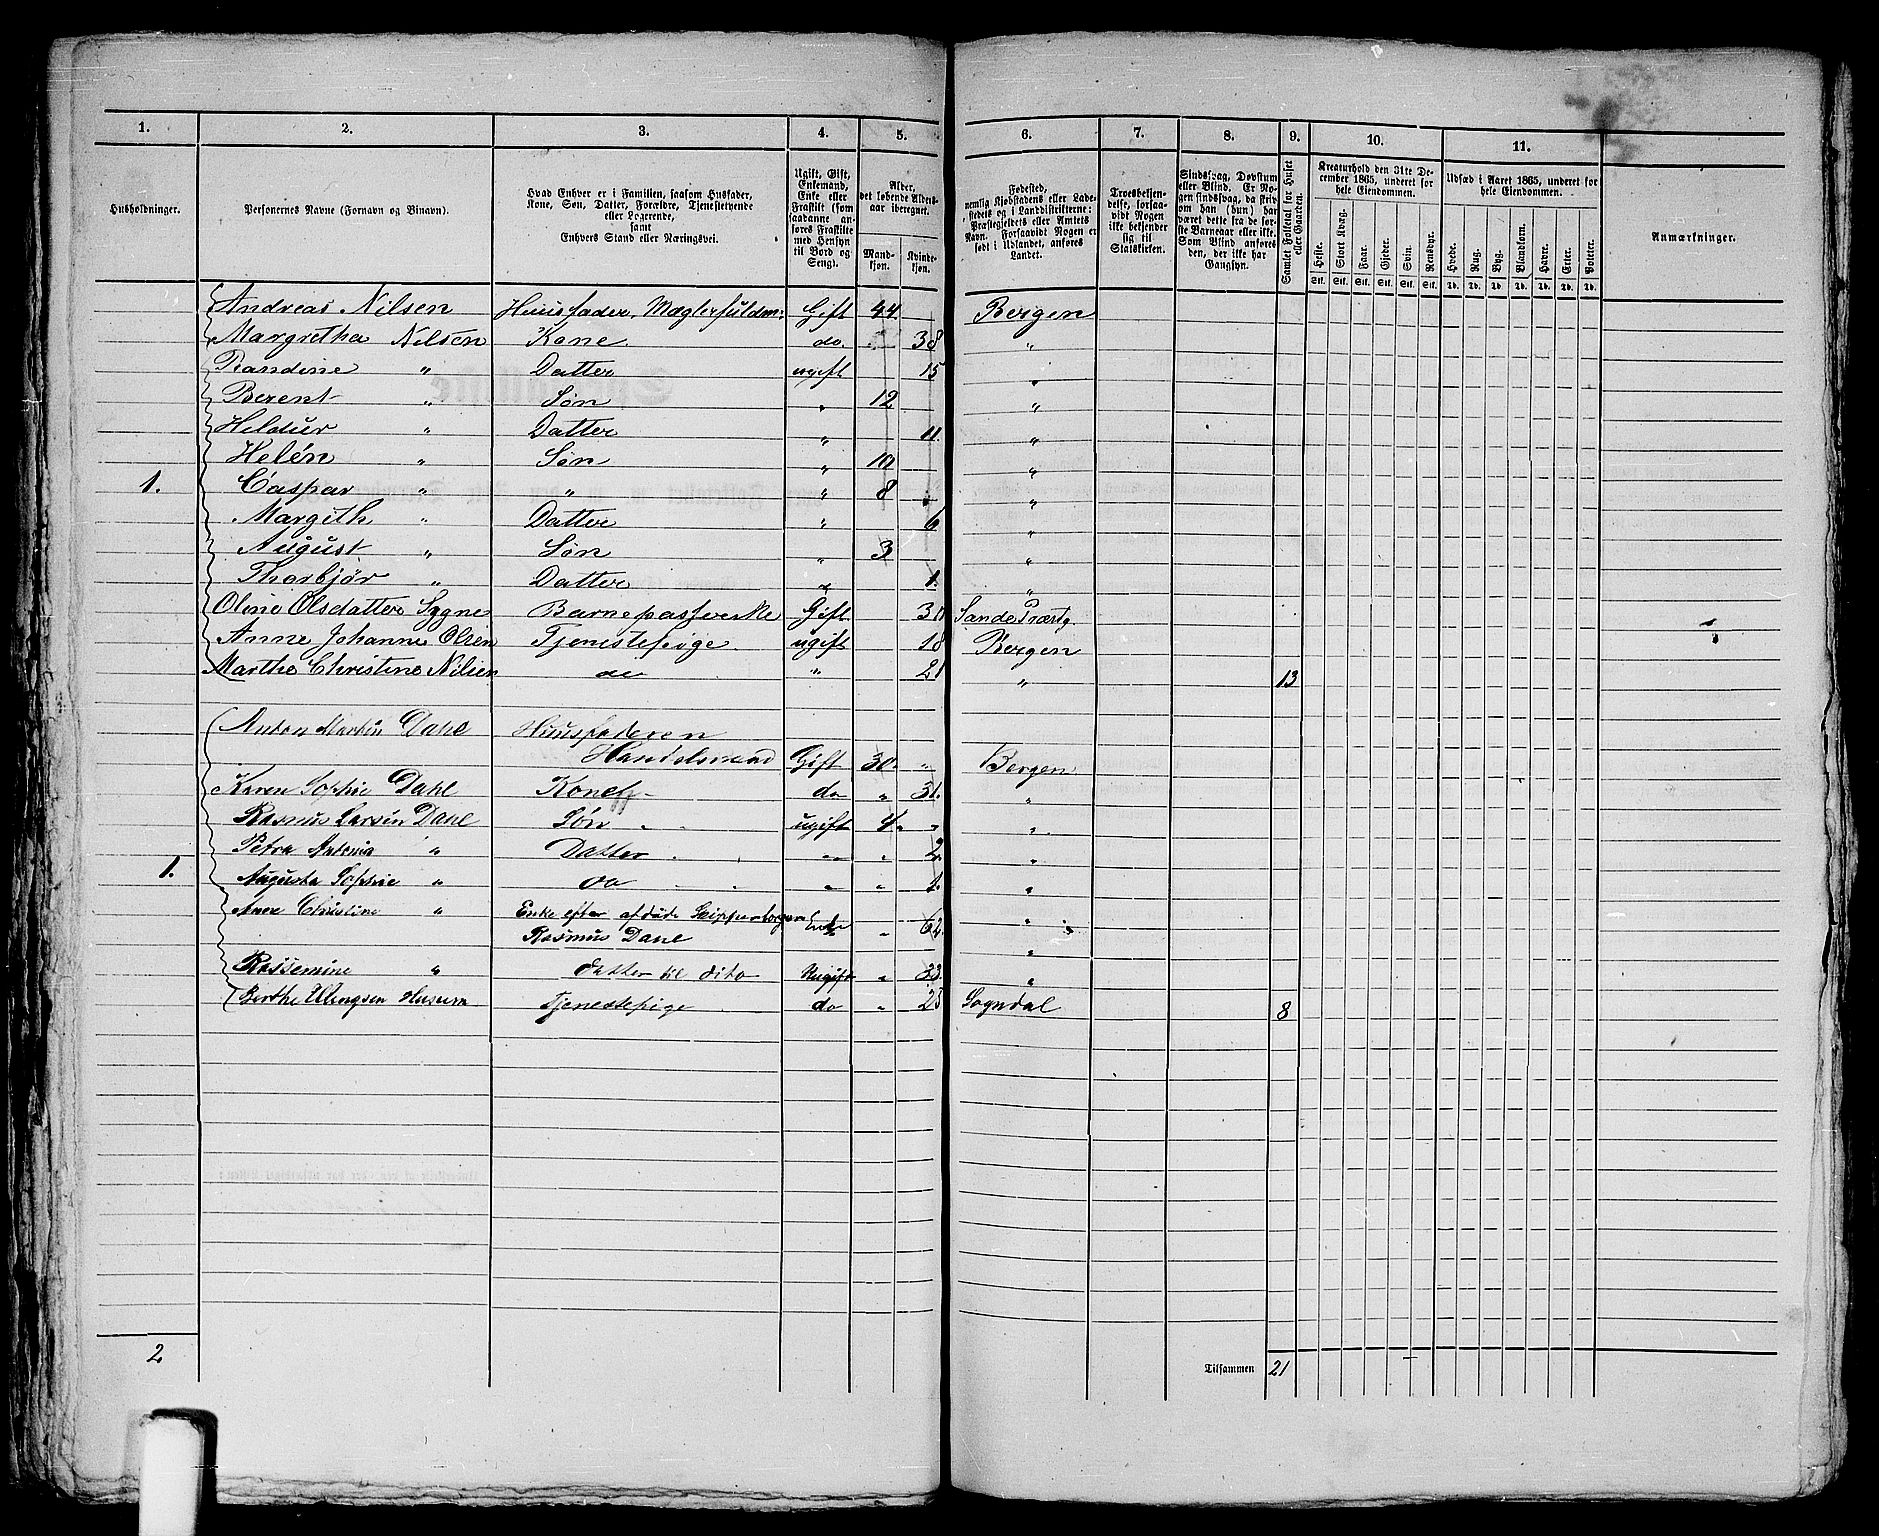 1. 2. 3. 4. 5. 6. 7. 8. 9. 10. 11.
Husholdninger.
Personernes Navne (Fornavn og Binavn).
Hvad Enhver er i Familien, saasom Husfader,
Kone, Søn, Datter, Forældre, Tjenestetyende
eller Logerende,
samt
Enhvers Stand eller Næringsvei.
Ugift, Gift,
Enkemand,
Enke eller
Fraskilt (som
saadanne an-
føres Fraskilte
med Hensyn
til Bord og
Seng).
Alder,
det løbende Alders-
aar iberegnet.
Mand-
kjøn.
Kvinde-
kjøn.
Fødested,
nemlig Kjøbstadens eller Lade-
stedets og i Landdistrikterne:
Præstegjeldets eller Amtets
Navn. Forsaavidt Nogen er
født i Udlandet, anføres
Landet.
Troesbekjen-
delse, forsaa-
vidt Nogen
ikke bekjender
sig til
Statskirken.
Sindssvag, Døvstum
eller Blind. Er No-
gen sindssvag, da skriv
om han (hun) har
været dette fra de før-
ste Barneaar eller ikke.
Som Blind anføres
den, der ikke har
Gangsyn.
Samlet Folketal for Huset
eller Gaarden.
Kreaturhold den 31te De-
cember 1865, underet for
hele Eiendommen.
Heste. Stort Kvæg. Faar. Gjeder. Svin. Rensdyr.
Stk. Stk. Stk. Stk. Stk. Stk.
Udsæd i Aaret 1865, underet for
hele Eiendommen.
Hvede. Rug. Byg. Blandkorn. Havre. Erter. Poteter.
Td. Td. Td. Td. Td. Td. Td.
Anmærkninger.
Andreas Nilsen Huusfader, Mæglerfuldm: Gift 44 Bergen
Margretha Nilsen Kone. do. 38 "
Randine " Datter ugift 15 "
Berent " Søn " 12 "
Heldur " Datter " 11. "
Helén " Søn " 10 "
1. Caspar " " " 8 "
Margith " Datter " 6 "
August " Søn " 3 "
Thorbjør " Datter " 1. "
Oline Olsdatter Sygne Barnepasserske Gift 30 Sande Præstg
Anne Johanne Olsen Tjenestepige ugift 18 Bergen
Marthe Christine Nilsen do " 21 " 13
Anton Martin Dahl Huusfaderen
Handelsmand Gift 30. " Bergen
Karen Sophie Dahl Kone do " 31. "
Rasmus Larsen Dahl Søn ugift 4. " "
Petra Antonia " Datter " 2. "
1. Augusta Sophie " do " " 1. "
Anne Christine " Enke efter afdøde Skipperborger Enke " 62. "
Rasmus Dahl "
Rassemine " datter til dito Uugift " 33. "
Berthe Ellingsen Husum Tjenestepige do " 23 Sogndal 8
2 Tilsammen 21